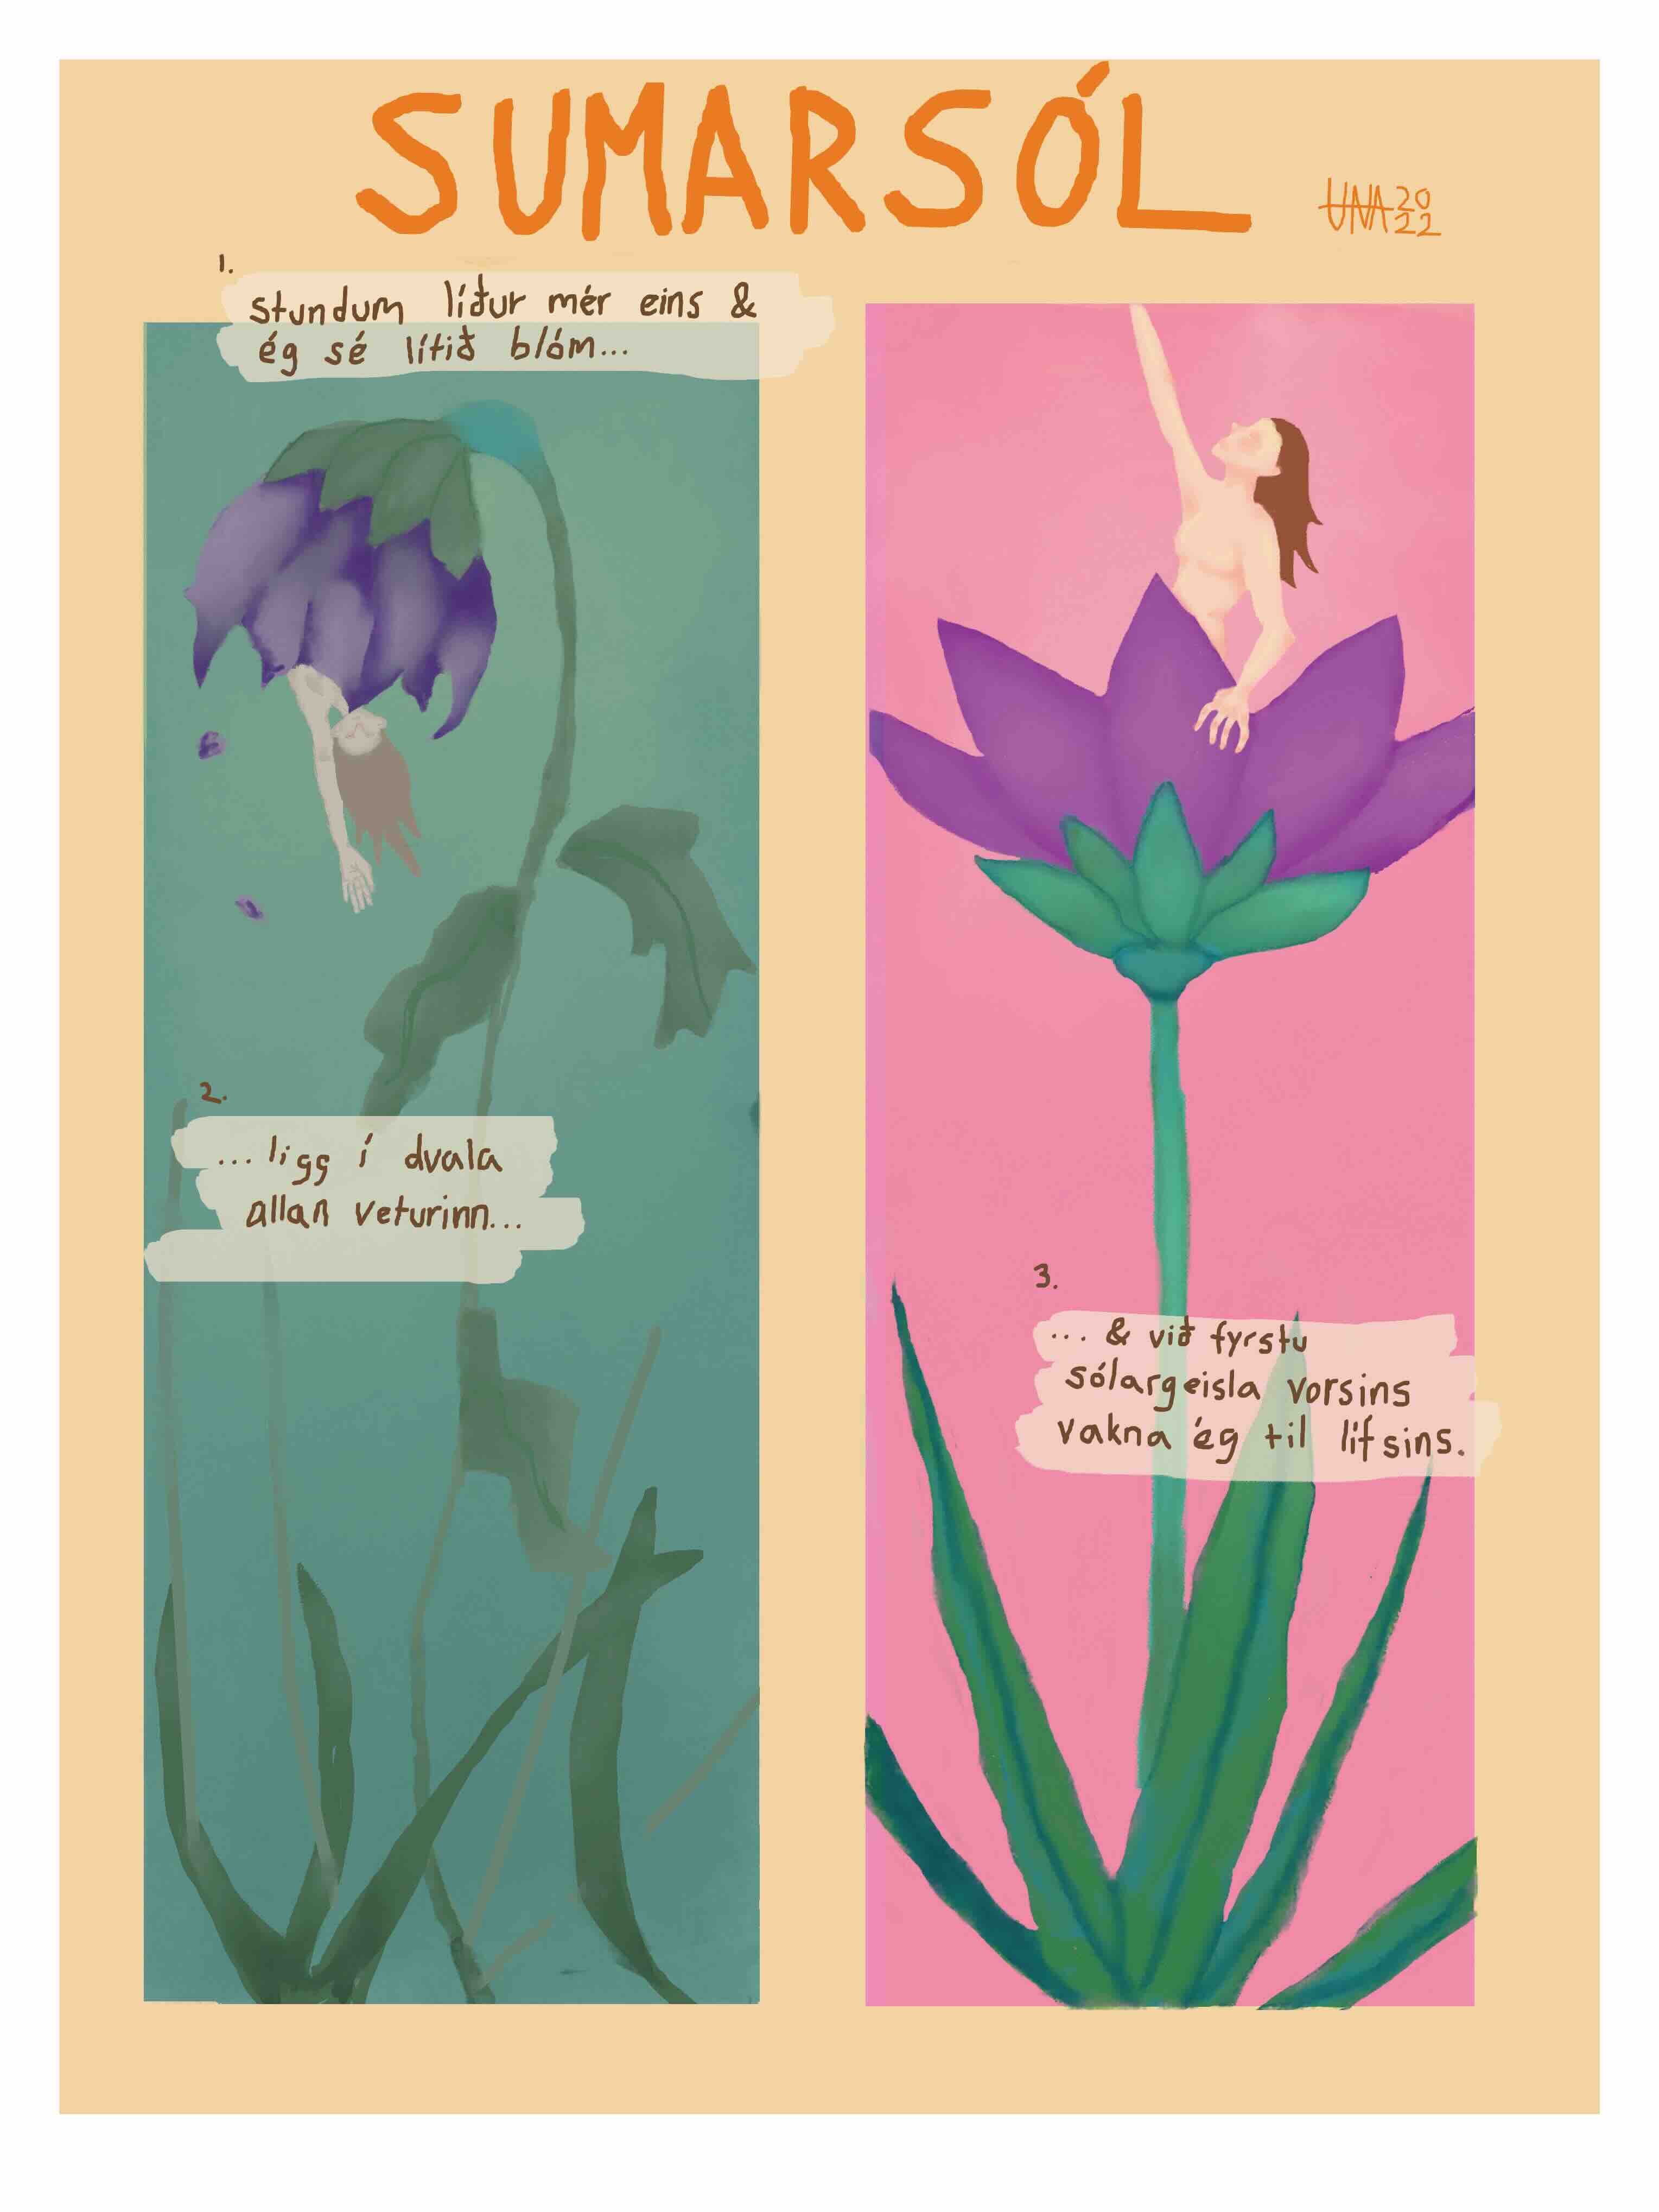 SUMARSÓL
UNA 20
22
1.
stundum líður mér eins &
ég sé lítið blóm...
2.
... ligg í dvala
allan veturinn...
3.
... & við fyrstu
sólargeisla vorsins
vakna ég til lífsins.